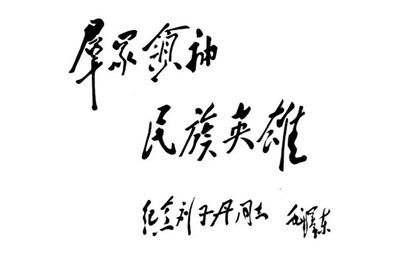 羣众领袖
民族英雄
纪念刘子丹同志 毛泽东